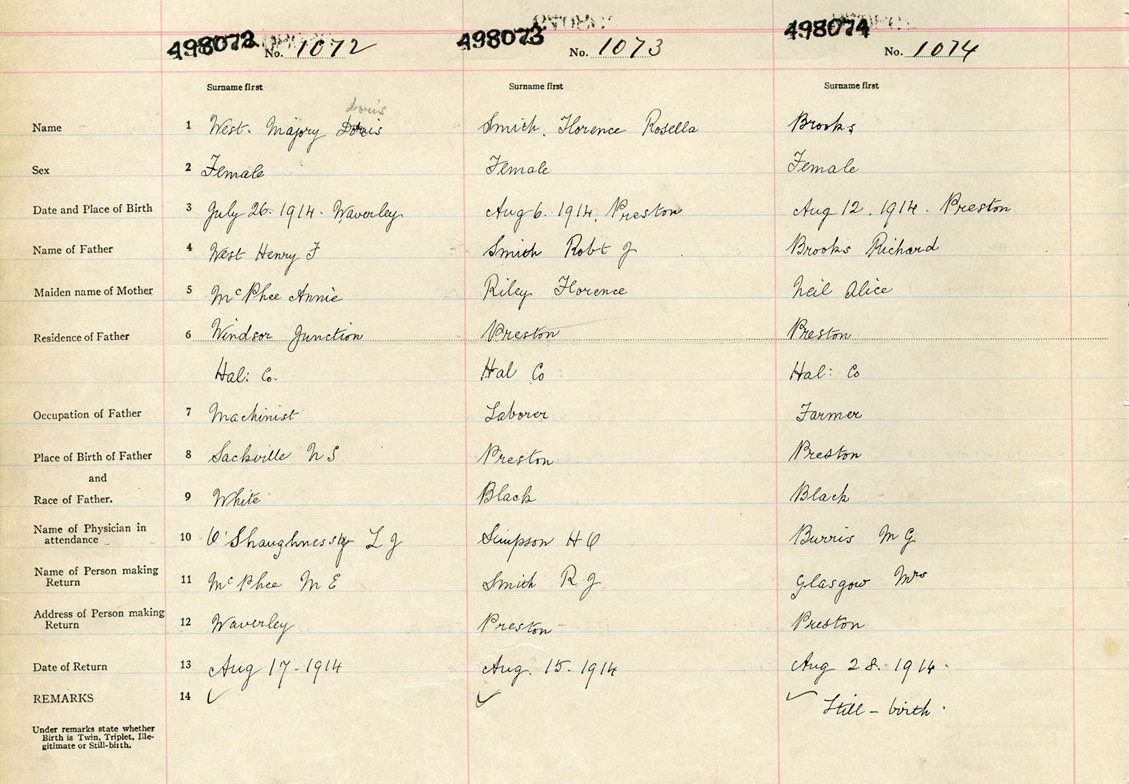 498072 No. 1072 498073 No. 1073 498074 No. 1074
Surname first Surname first Surname first
Doris
Name 1 West. Majory Doris Smith, Florence Rosella Brooks
Sex 2 Female Female Female
Date and Place of Birth 3 July 26. 1914. Waverley Aug 6. 1914. Preston Aug 12. 1914. Preston
Name of Father 4 West Henry F Smith Robt J Brooks Richard
Maiden name of Mother 5 McPhee Annie Riley Florence Neil Alice
Residence of Father 6 Windsor Junction Preston Preston
Hal: Co. Hal Co Hal: Co
Occupation of Father 7 Machinist Laborer Farmer
Place of Birth of Father 8 Sackville N S Preston Preston
and
Race of Father. 9 White Black Black
Name of Physician in
attendance 10 O'Shaughnessy L J Simpson H O Burris M G
Name of Person making
Return 11 McPhee M E Smith R J Glasgow Mrs
Address of Person making
Return 12 Waverley Preston Preston
Date of Return 13 Aug 17-1914 Aug. 15. 1914 Aug 28. 1914.
REMARKS 14 ✓ ✓ ✓ Still - birth.
Under remarks state whether
Birth is Twin, Triplet, Ille-
gitimate or Still-birth.